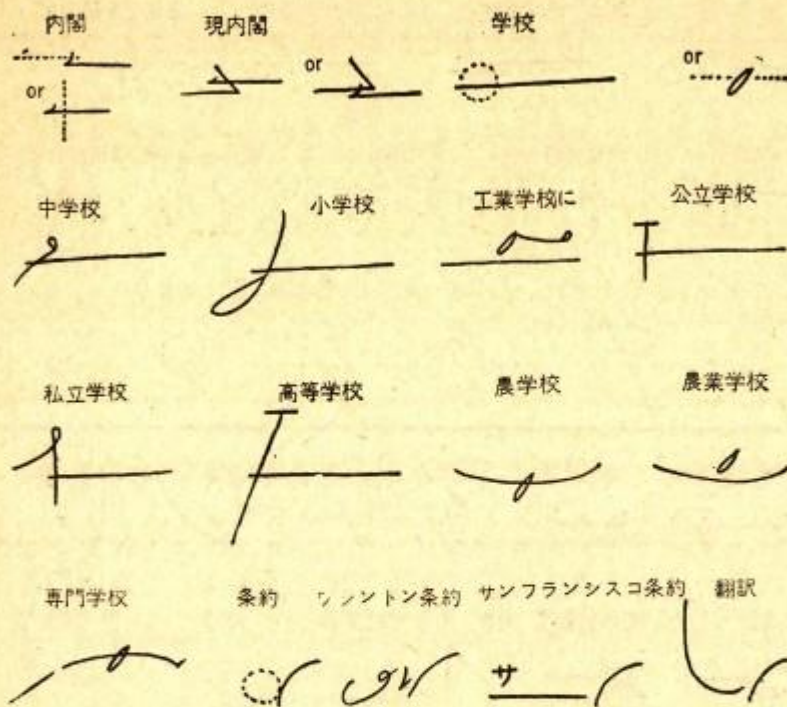 内閣 現内閣 学校
or or or
中学校 小学校 工業学校に 公立学校
私立学校 高等学校 農学校 農業学校
専門学校 条約 ントン条約 サンフランシスコ条約 翻訳
サ